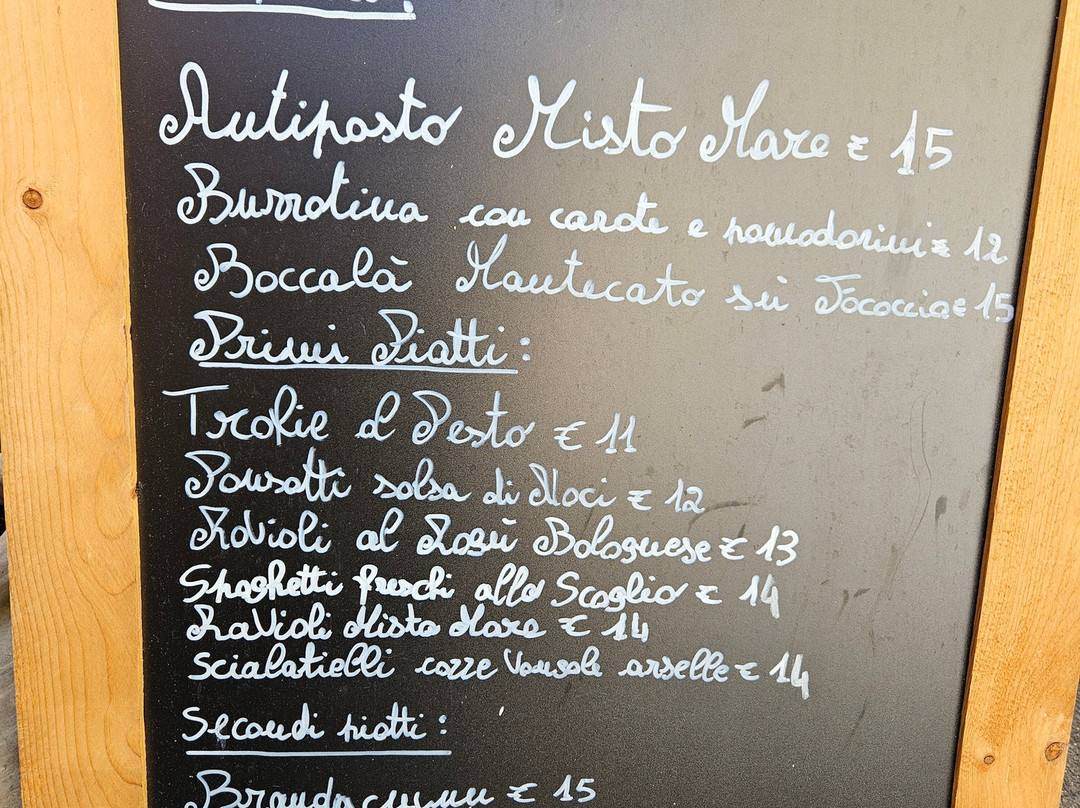 Antipasto Misto Mare € 15
Burratina con carote e pomodorini € 12
Baccalà Mantecato su Focaccia € 15
Primi Piatti:
Trofie al Pesto € 11
Pansotti salsa di Noci € 12
Ravioli al Ragù Bolognese € 13
Spaghetti freschi allo Scoglio € 14
Ravioli Misto Mare € 14
Scialatielli cozze Vongole arselle € 14
Secondi piatti:
€ 15